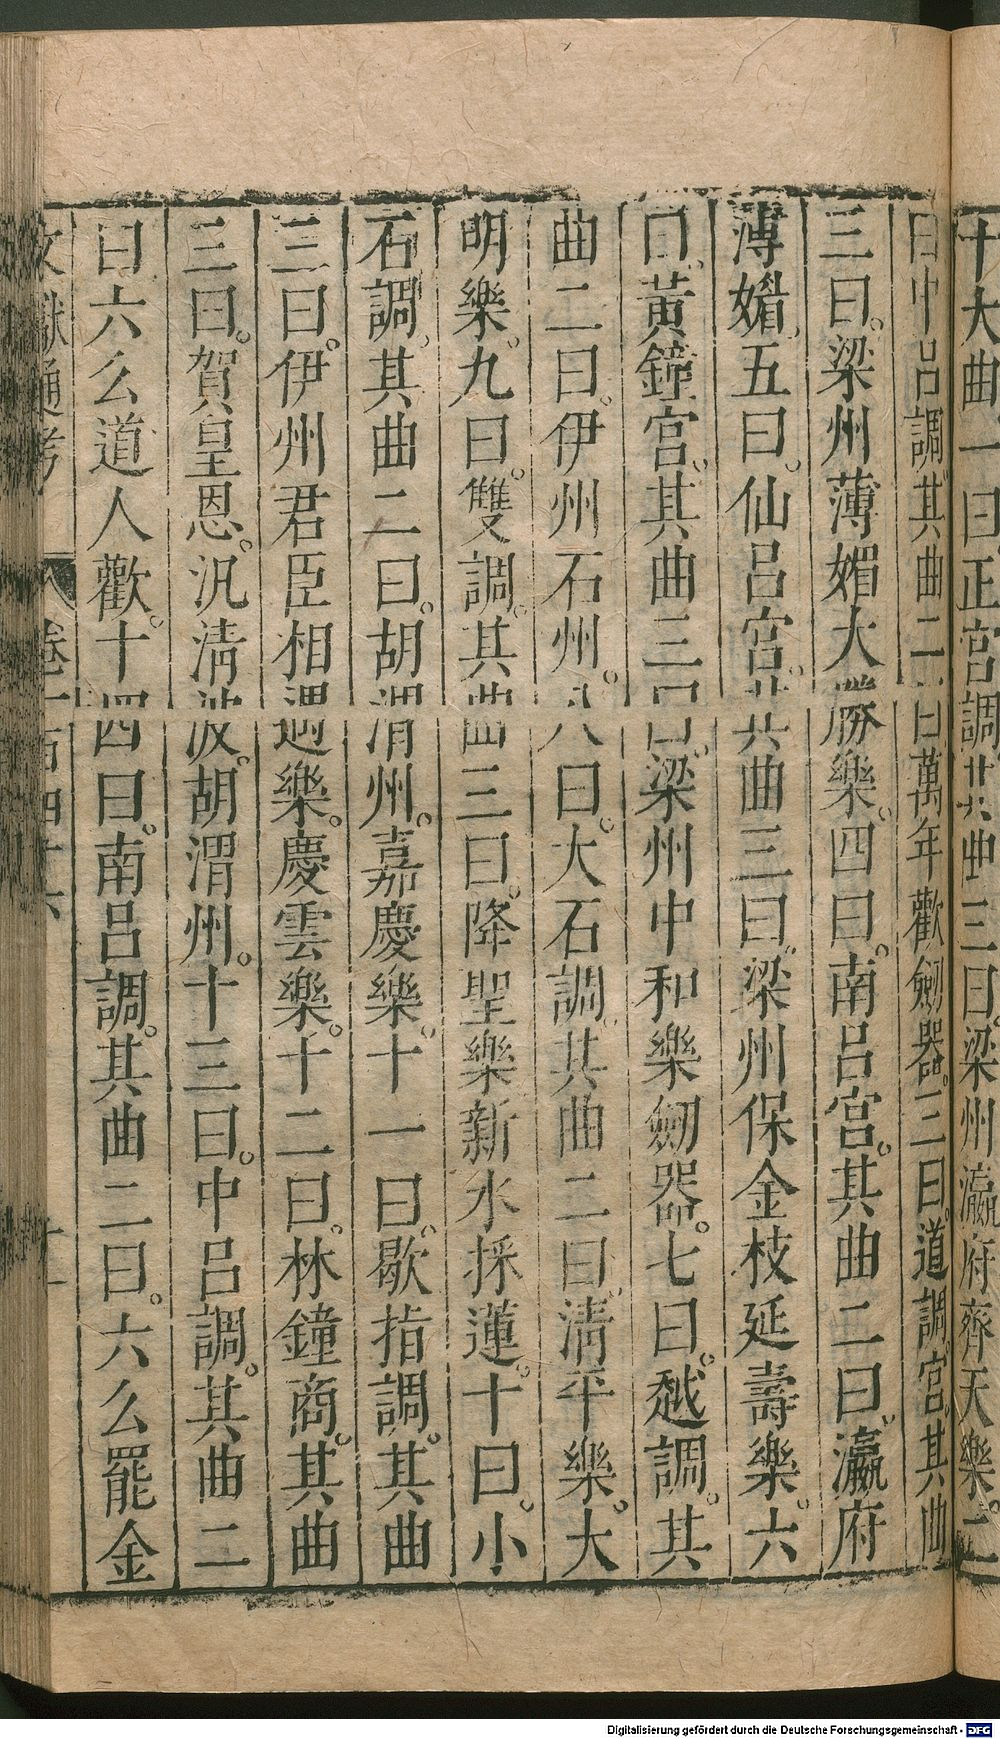 十大曲一曰正宮調。其曲三曰。梁州瀛府齊天樂。二
曰中呂調。其曲二曰萬年歡劒器。三曰。道調宮。其曲
三曰。梁州薄媚大勝樂。四曰。南呂宮。其曲二曰。瀛府
薄媚。五曰。仙呂宮。其曲三曰。梁州保金枝延壽樂。六
曰。黃鐘宮。其曲三曰。梁州中和樂劒器。七曰。越調。其
曲二曰。伊州石州。八曰。大石調。其曲二曰。清平樂。大
明樂。九曰。雙調。其曲三曰。降聖樂新水採蓮。十曰。小
石調。其曲二曰。胡渭州。嘉慶樂。十一曰。歇指調。其曲
三曰。伊州君臣相遇樂。慶雲樂。十二曰。林鐘商。其曲
三曰。賀皇恩。汎清波。胡渭州。十三曰。中呂調。其曲二
曰六么道人歡。十四曰。南呂調。其曲二曰。六么罷金
文獻通考 卷一百四十六 十一
Digitalisierung gefördert durch die Deutsche Forschungsgemeinschaft - DFG